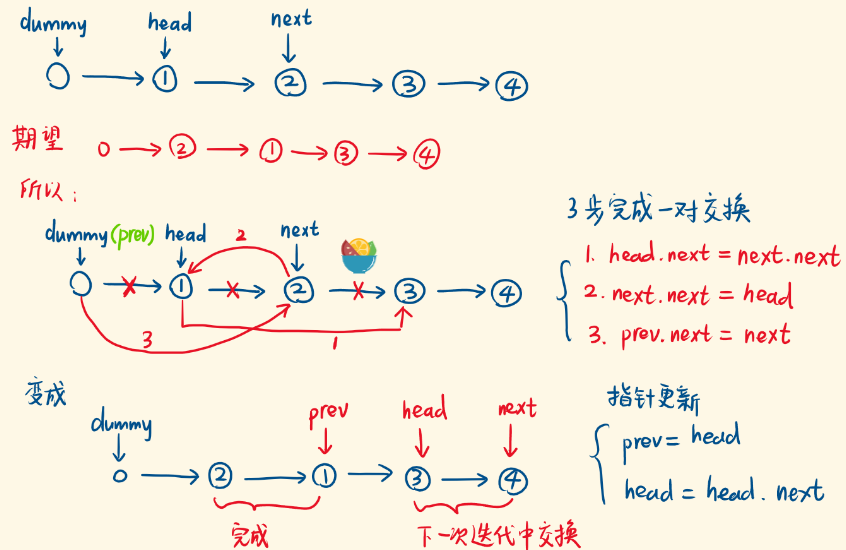 dummy head next
① ② ③ ④
期望 0 ② ① ③ ④
所以：
dummy(prev) head 2 next
① ② ③ ④
3 1
3步完成一对交换
1. head.next = next.next
2. next.next = head
3. prev.next = next
变成
dummy prev head next
② ① ③ ④
完成 下一次迭代中交换
指针更新
prev = head
head = head.next